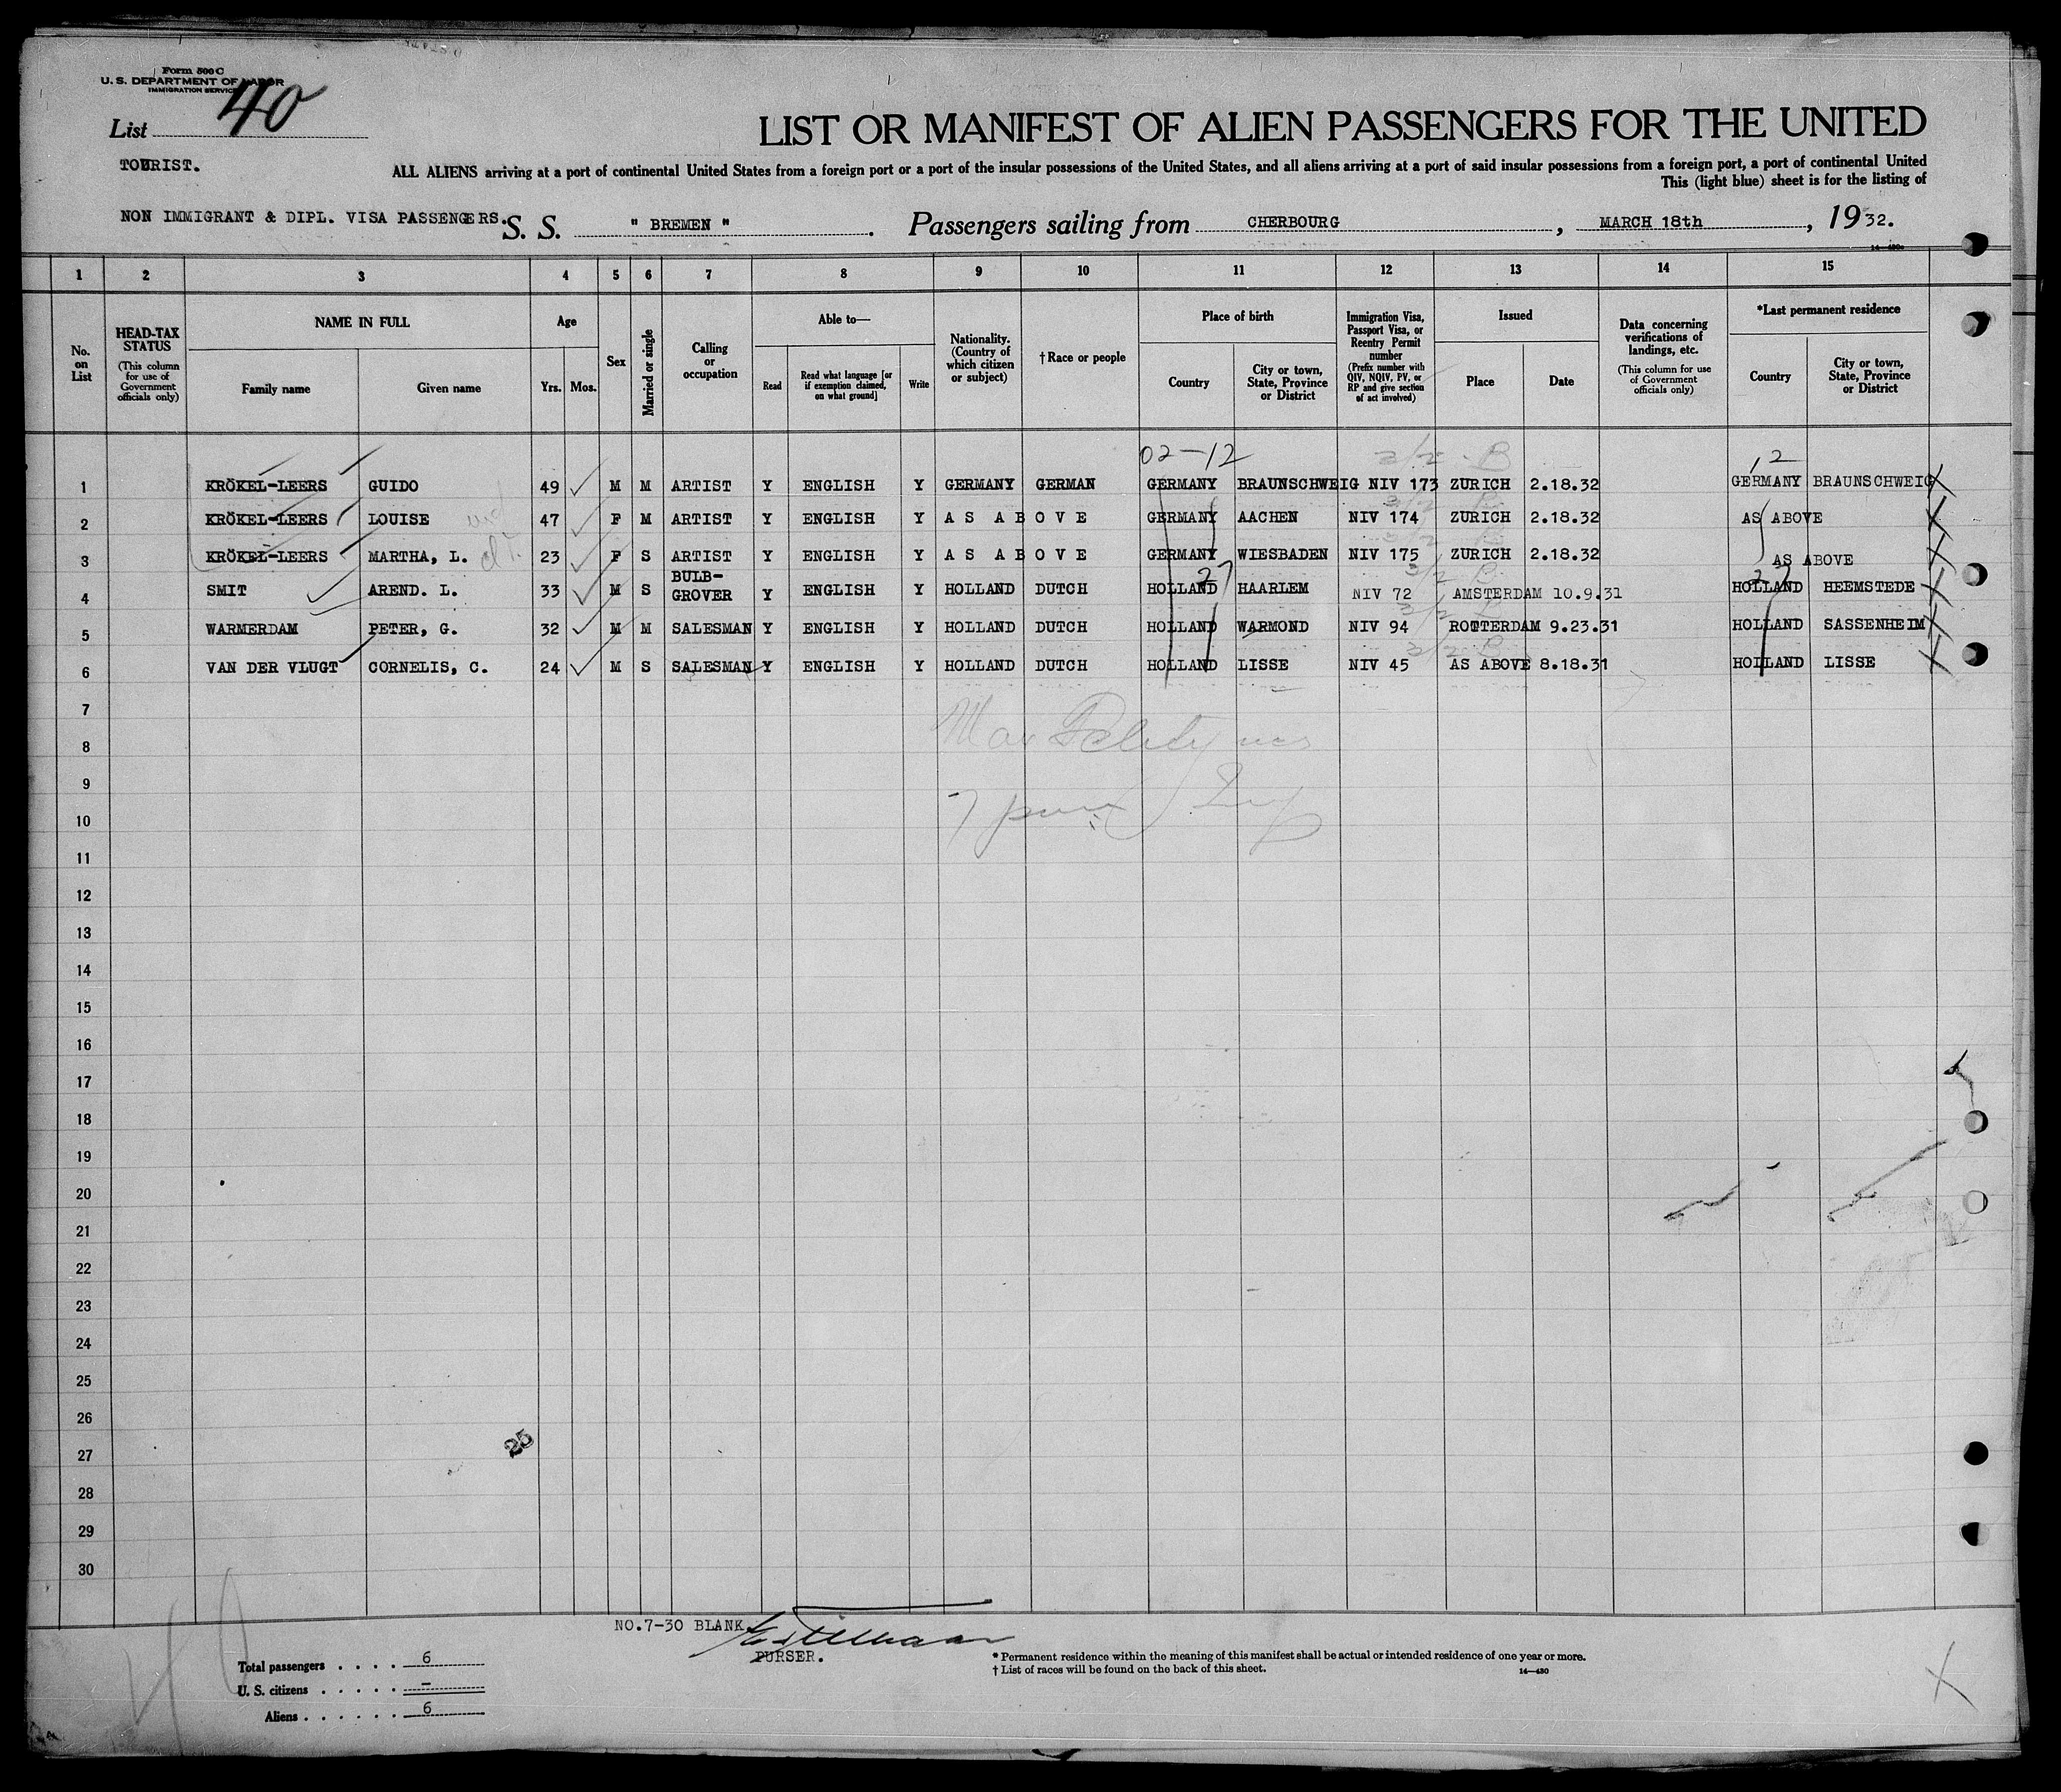 Form 500 C
U. S. DEPARTMENT OF LABOR
IMMIGRATION SERVICE
List 40
LIST OR MANIFEST OF ALIEN PASSENGERS FOR THE UNITED
TOURIST.
ALL ALIENS arriving at a port of continental United States from a foreign port or a port of the insular possessions of the United States, and all aliens arriving at a port of said insular possessions from a foreign port, a port of continental United
This (light blue) sheet is for the listing of
NON IMMIGRANT & DIPL. VISA PASSENGERS. S. S. " BREMEN ". Passengers sailing from CHERBOURG, MARCH 18th, 1932.
1 2 3 4 5 6 7 8 9 10 11 12 13 14 15
No. on List
HEAD-TAX STATUS (This column for use of Government officials only)
NAME IN FULL
Family name
Given name
Age
Yrs.
Mos.
Sex
Married or single
Calling or occupation
Able to—
Read
Read what language [or if exemption claimed, on what ground]
Write
Nationality. (Country of which citizen or subject)
†Race or people
Place of birth
Country
City or town, State, Province or District
Immigration Visa, Passport Visa, or Reentry Permit number (Prefix number with QIV, NQIV, PV, or RP and give section of act involved)
Issued
Place
Date
Data concerning verifications of landings, etc. (This column for use of Government officials only)
*Last permanent residence
Country
City or town, State, Province or District
02-12
1 KRÖKEL-LEERS GUIDO 49 M M ARTIST Y ENGLISH Y GERMANY GERMAN GERMANY BRAUNSCHWEIG NIV 173 ZURICH 2.18.32 GERMANY BRAUNSCHWEIG
2 KRÖKEL-LEERS LOUISE 47 F M ARTIST Y ENGLISH Y AS ABOVE GERMANY AACHEN NIV 174 ZURICH 2.18.32 AS ABOVE
3 KRÖKEL-LEERS MARTHA, L. 23 F S ARTIST Y ENGLISH Y AS ABOVE GERMANY WIESBADEN NIV 175 ZURICH 2.18.32 AS ABOVE
4 SMIT AREND. L. 33 M S BULB-GROVER Y ENGLISH Y HOLLAND DUTCH HOLLAND 27 HAARLEM NIV 72 AMSTERDAM 10.9.31 HOLLAND 27 HEEMSTEDE
5 WARMERDAM PETER, G. 32 M M SALESMAN Y ENGLISH Y HOLLAND DUTCH HOLLAND WARMOND NIV 94 ROTTERDAM 9.23.31 HOLLAND SASSENHEIM
6 VAN DER VLUGT CORNELIS, C. 24 M S SALESMAN Y ENGLISH Y HOLLAND DUTCH HOLLAND LISSE NIV 45 AS ABOVE 8.18.31 HOLLAND LISSE
7
8
9
10
11
12
13
14
15
16
17
18
19
20
21
22
23
24
25
26
27
28
29
30
25
NO.7-30 BLANK.
PURSER.
Total passengers . . . . 6
U. S. citizens . . . . . –
Aliens . . . . . . 6
* Permanent residence within the meaning of this manifest shall be actual or intended residence of one year or more.
† List of races will be found on the back of this sheet.
14—430
40